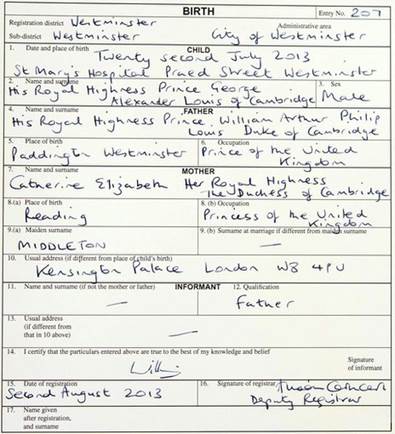 BIRTH
Entry No. 207
Registration district Westminster
Administrative area
Sub-district Westminster City of Westminster
CHILD
1. Date and place of birth
Twenty second July 2013
St Mary's Hospital Praed Street Westminster
2. Name and surname 3. Sex
His Royal Highness Prince George
Alexander Louis of Cambridge Male
FATHER
4. Name and surname
His Royal Highness Prince William Arthur Philip
Louis Duke of Cambridge
5. Place of birth 6. Occupation
Paddington Westminster Prince of the United
Kingdom
MOTHER
7. Name and surname
Catherine Elizabeth Her Royal Highness
The Duchess of Cambridge
8.(a) Place of birth 8. (b) Occupation
Reading Princess of the United
Kingdom
9.(a) Maiden surname 9. (b) Surname at marriage if different from maiden surname
MIDDLETON —
10. Usual address (if different from place of child's birth)
Kensington Palace London W8 4PU
INFORMANT
11. Name and surname (if not the mother or father) 12. Qualification
— Father
13. Usual address
(if different from
that in 10 above) —
14. I certify that the particulars entered above are true to the best of my knowledge and belief
Signature
of informant
15. Date of registration 16. Signature of registrar
Second August 2013
Deputy Registrar
17. Name given
after registration,
and surname